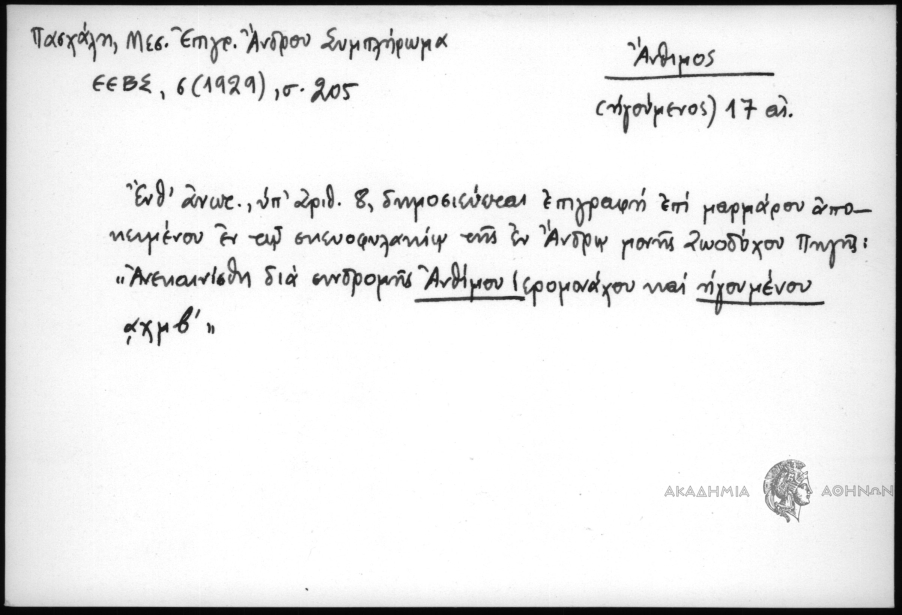 Πασχάλη, Μεσ. Ἐπιγρ. Ἄνδρου Συμπλήρωμα
ΕΕΒΣ, 6 (1929), σ. 205
Ἄνθιμος
(ἡγούμενος) 17 αἰ.
Ἔνθ' ἀνωτ., ὑπ' ἀριθ. 8, δημοσιεύεται ἐπιγραφή ἐπί μαρμάρου ἀπο-
κειμένου ἐν τῷ σκευοφυλακίῳ τῆς ἐν Ἄνδρῳ μονῆς Ζωοδόχου Πηγῆς:
"Ἀνεκαινίσθη διά συνδρομῆς Ἀνθίμου ἱερομονάχου καί ἡγουμένου
͵αχμβ'"
ΑΚΑΔΗΜΙΑ ΑΘΗΝΩΝ